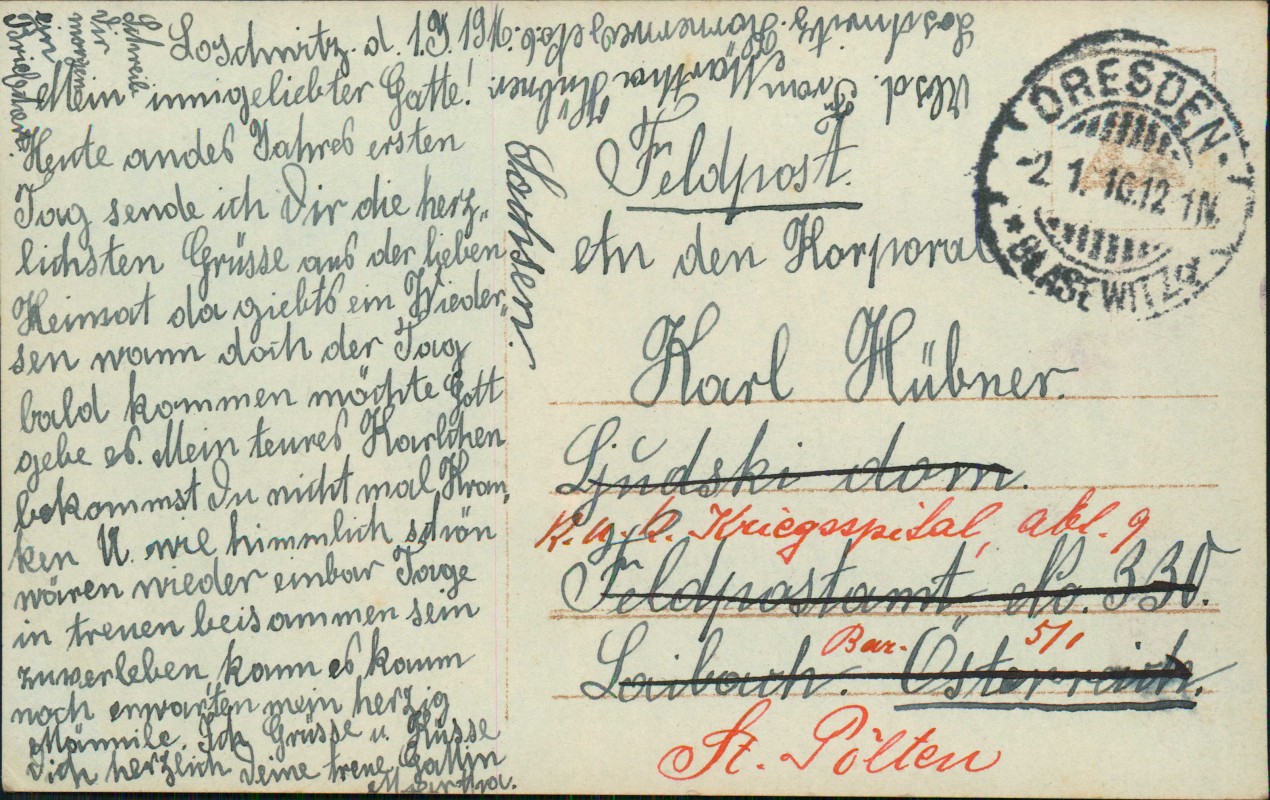 Loschwitz. d. 1.I. 1916.
Mein innigeliebter Gatte!
Heute andes Jahres ersten
Tag sende ich Dir die herz„
lichsten Grüsse aus der lieben
Heimat da giebts ein Wieder„
sen wann doch der Tag
bald kommen möchte Gott
gebe es. Mein teures Karlchen
bekommst Du nicht mal Kran„
ken U. wie himmlich schön
wären wieder einbar Tage
in treuen beisammen sein
zuverleben, kann es kaum
noch erwarten mein herzig
Männile. Ich Grüsse u. Küsse
Dich herzlich Deine treue Gattin
Martha.
Schreib
Dir
morgen
ein
Absd. Frau Martha Hübner
Loschwitz.
Sachsen.
Feldpost.
An den Korporal
Karl Hübner.
Ljudski dom.
K. u. K. Kriegsspital, abt. 9
Feldpostamt No. 330.
Bar. 5/1
Laibach. Österreich.
St. Pölten
DRESDEN
-2.1.16.12-1N.
*BLASEWITZ d